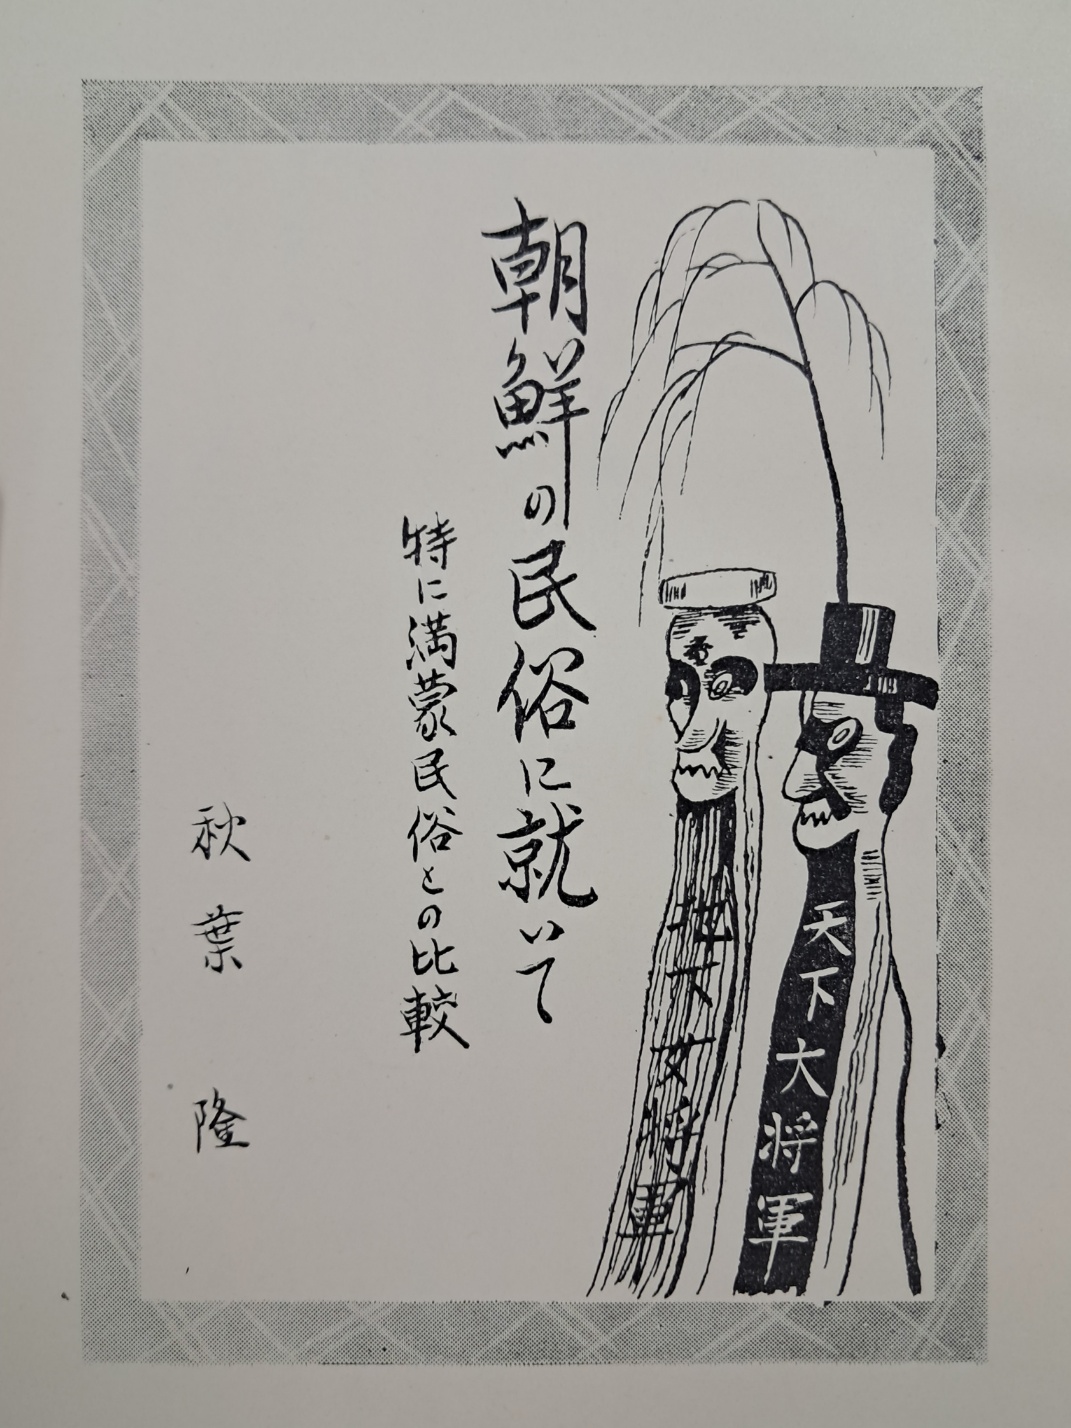 天下大将軍
地下女将軍
朝鮮の民俗に就いて
特に満蒙民俗との比較
秋葉 隆